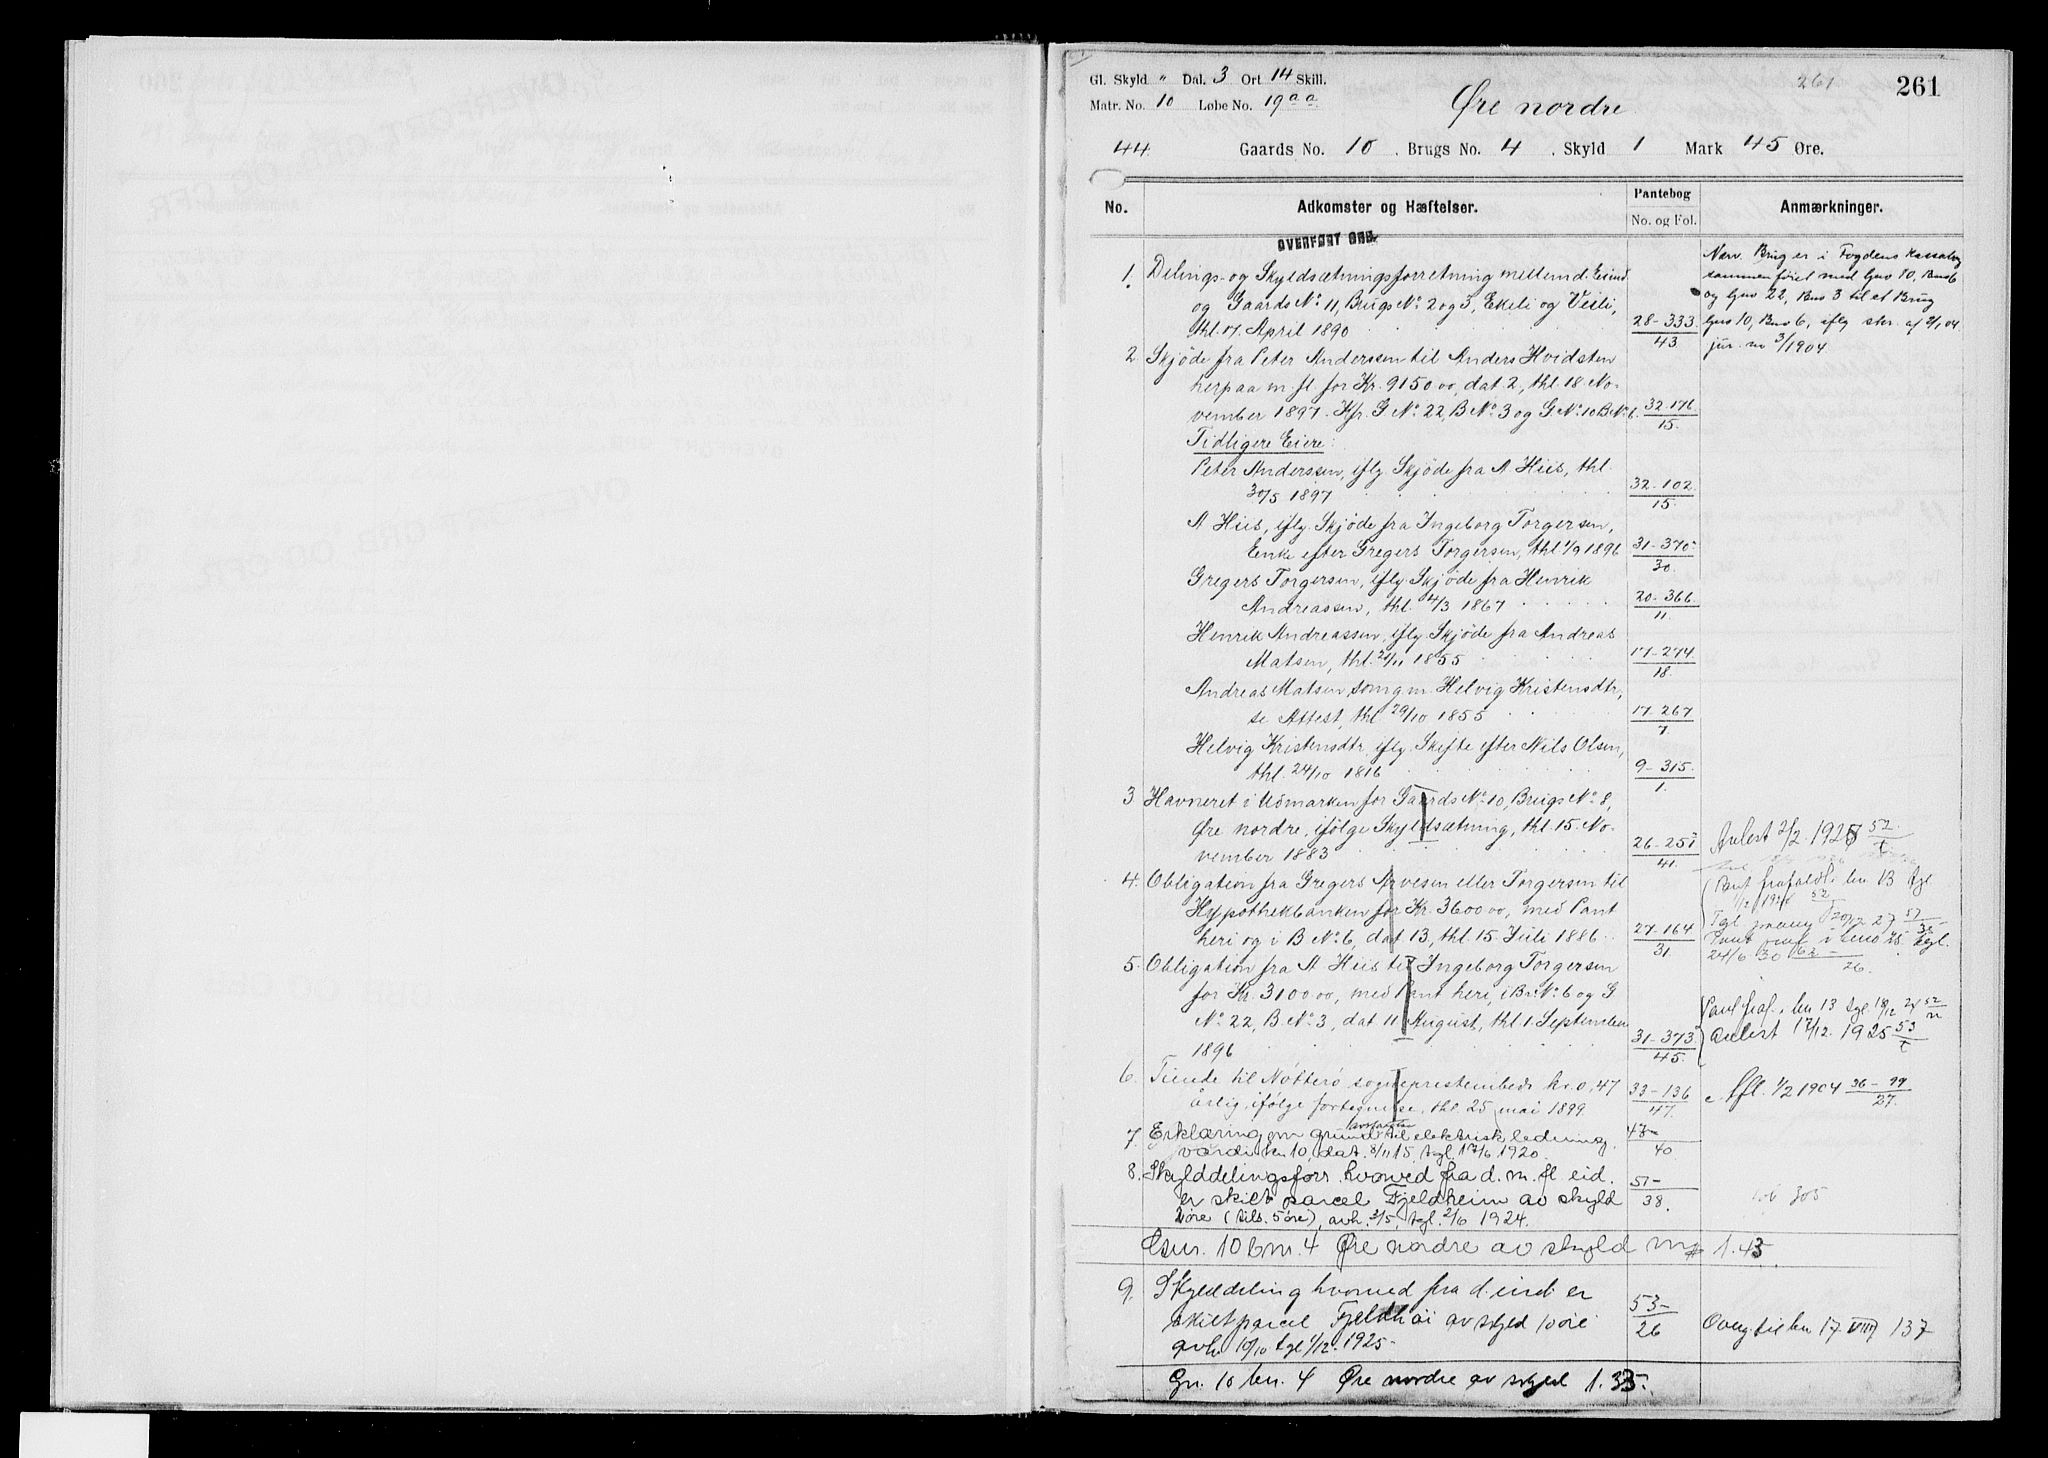 Gl. Skyld " Dal. 3 Ort 14 Skill. 261 261
Matr. No. 10 Løbe No. 19 a a
Øre nordre
44 Gaards No. 10. Brugs No. 4. Skyld 1 Mark 45 Øre.
No. Adkomster og Hæftelser. Pantebog No. og Fol. Anmærkninger.
OVERFØRT GRB.
1. Delings- og Skyldsætningsforretning mellem d. Eiend.
og Gaards No. 11, Brugs No. 2 og 3, Ekeli og Veili,
thl. 17. April 1890 28-333/43
Nærv. Brug er i Fogdens
sammenføiet med Gno 10, Bno 6
og Gno 22, Bno 3 til et Brug
Gno 10, Bno 6, ifly skr. af 2/1 04
jur. no 3/1904
2. Skjøde fra Peter Anderssen til Anders Hvidsten
herpaa m. fl. for Kr. 9150 00, dat. 2, thl. 18. No-
vember 1897. Kfr. G No. 22, B No. 3 og G No. 10 B No. 6. 32-176/15
Tidligere Eiere:
Peter Anderssen, ifly Skjøde fra A Hiis, thl.
30/5 1897 32-102/15
A Hiis, ifly. Skjøde fra Ingeborg Torgersen,
Enke efter Gregers Torgersen, thl. 1/9 1896 31-370/30
Gregers Torgersen, ifly. Skjøde fra Henrik
Andreassen, thl. 4/3 1867 20-366/11
Henrik Andreassen, ifly. Skjøde fra Andreas
Matsen, thl. 21/11 1855 17-274/18
Andreas Matsen, som g. m. Helvig Kristensdtr,
se Attest, thl. 29/10 1855 17-267/7
Helvig Kristensdtr, ifly. Skifte efter Nils Olsen,
thl. 24/10 1816 9-315/1.
3. Havneret i Udmarken for Gaards No. 10, Brugs No. 8,
Øre nordre, ifølge Skyldsætning, thl. 15. No-
vember 1883 26-257/41. Avlest 2/2 1925 52
4. Obligation fra Gregers Arvesen eller Torgersen til
Hypothekbanken for Kr. 3600 00, med Pant
heri og i B No. 6, dat 13, thl. 15. Juli 1886 27-164/31.
Pant frafaldt i bn 13 tgl
Tgl 20/12 27
Pant i tgl.
24/6 30 62-/26.
5. Obligation fra A Hiis til Ingeborg Torgersen
for Kr. 3100 00, med Pant heri, i B. No. 6 og G
No. 22, B. No. 3, dat 11 August, thl. 1. September
1896 31-373/45.
Pant fraf. i bn 13 tgl 18/12 24 52
Avlest 17/12. 1925 53
6. Tiende til Nøtterø sogneprestembede kr. 0,47
årlig, ifølge fortegnelse, thl. 25 mai 1899. 33-136/47. Afl. 1/2 1904 36-99/27.
avstaaelse
7. Erklæring om grund til elektrisk ledning,
værdi kr 10, dat. 8/11 15, tgl. 17/6 1920. 48-/40
8. Skylddelingsforr. hvorved fra d. m. fl. eid.
er skilt parcel Fjeldheim av skyld
2 øre (tils. 5 øre), avh. 3/5, tgl. 2/6 1924. 51-/38. 305
Gnr. 10 bnr. 4 Øre nordre av skyld Mk 1.43.
9. Skylddeling hvorved fra d. eiend. er
skilt parcel Fjeldhøi av skyld 10 øre
avh. 10/10 tgl 1/12. 1925- 53-/26 Overg til bn 17 VIII 137
Gn. 10 bn. 4 Øre nordre av skyld 1.33.